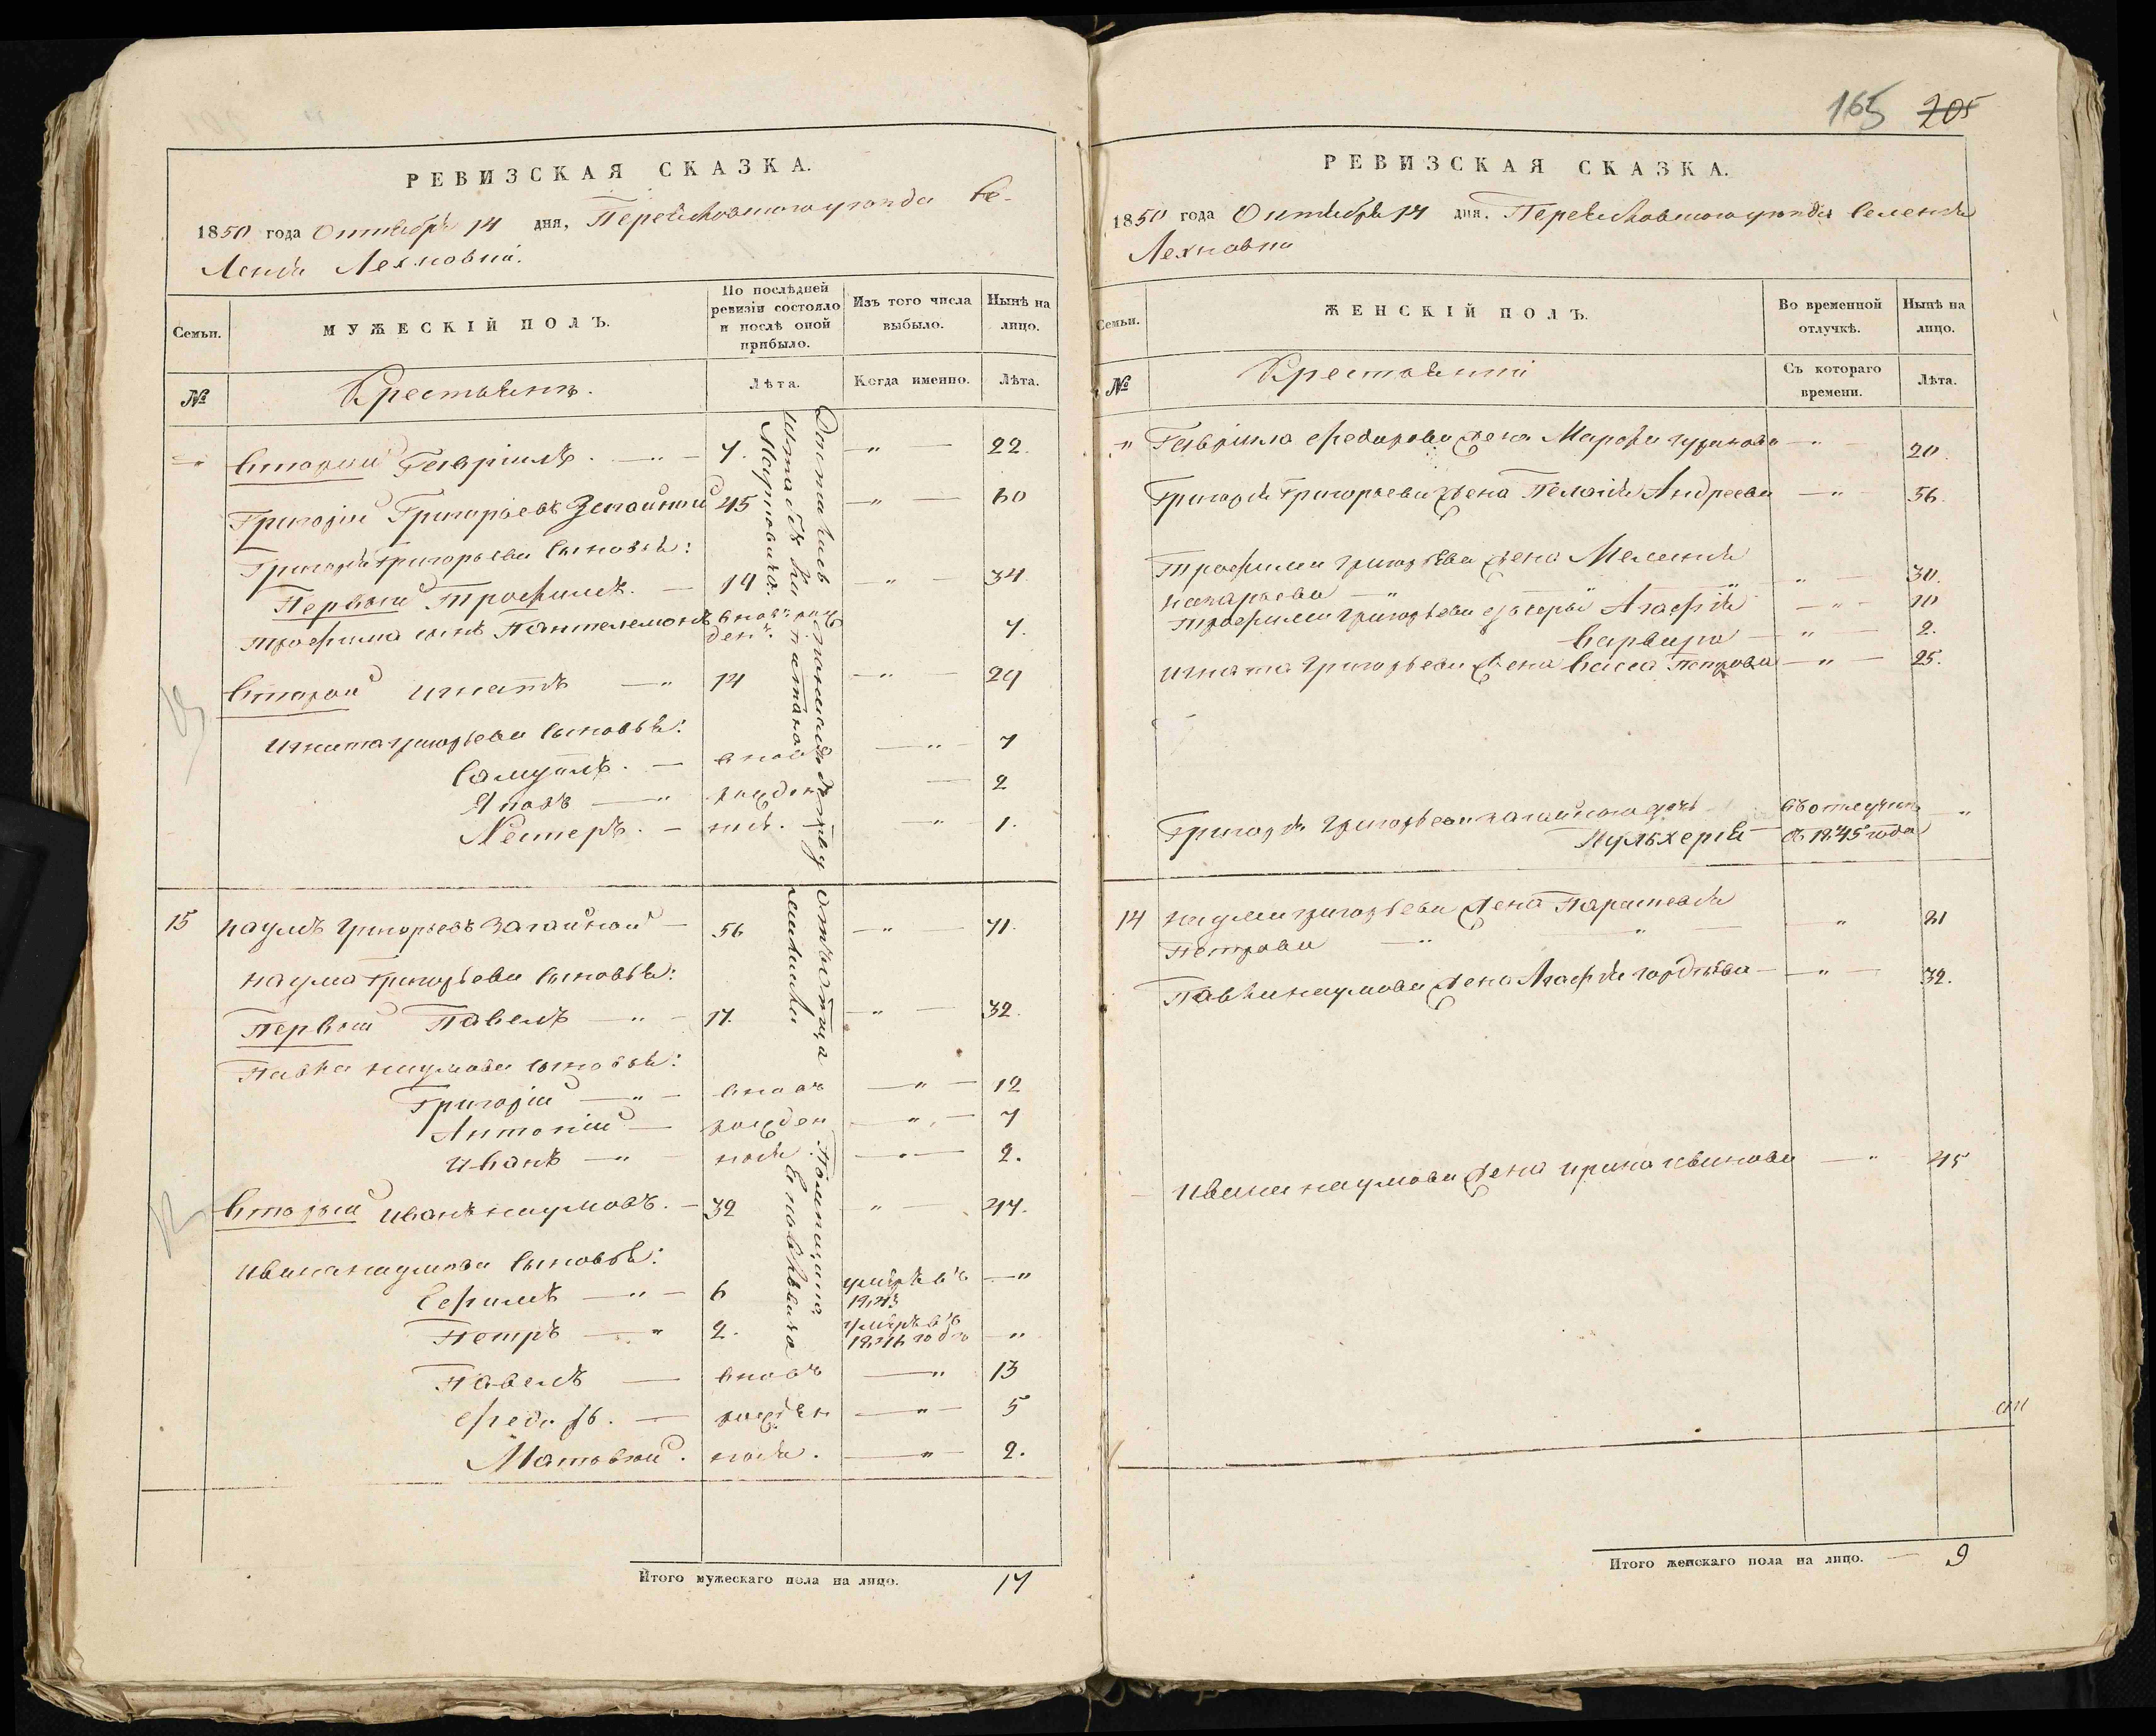 РЕВИЗСКАЯ СКАЗКА.
1850 года Октября 14 дня, Переяславского уезда Се-
ления Лехновки.
Семьи.
МУЖЕСКІЙ ПОЛЪ.
По послѣдней
ревизіи состояло
и послѣ оной
прибыло.
Изъ того числа
выбыло.
Нынѣ на
лицо.
№
Крестьянъ.
Лѣта.
Когда именно.
Лѣта.
Вторый Гавріилъ. 7. 22.
Григорій Григорьевъ Загайный 45 60
Григорія Григорьева сыновья:
Первый Трофимъ. 19 34
Трофима сынъ Пантелемонъ вновь рож
ден. 7.
Вторый Игнатъ 14 29
Игната Григорьева сыновья:
Самуилъ. вновь 7
Яковъ рожден 2
Несторъ. ные. 1.
15 Наумъ Григорьевъ Загайной 56 71.
Наума Григорьева сыновья:
Первый Павелъ 17. 32.
Павла Наумова сыновья:
Григорій вновь 12
Антоній рожден 7
Иванъ ные. 2.
Вторый Иванъ Наумовъ. 32 47.
Ивана Наумова сыновья:
Ефимъ 6 умеръ въ
1843
Петръ 2. умеръ въ
1846 годе
Павелъ вновь 13
Федоръ. рожден 5
Матвей. ные. 2.
Итого мужескаго пола на лицо. 17
165 205
РЕВИЗСКАЯ СКАЗКА.
1850 года Октября 14 дня. Переяславского уезда Селения
Лехновки
Семьи.
ЖЕНСКІЙ ПОЛЪ.
Во временной
отлучкѣ.
Нынѣ на
лицо.
№
Крестьянки
Съ котораго
времени.
Лѣта.
Гавріила Федорова жена Марфа 20.
Григорія Григорьева жена Пелагія Андреева 56.
Трофима Григорьева жена Меланія
Назарьева 30.
Трофима Григорьева дочери Агафія 10
Варвара 2.
Игната Григорьева жена Васса Петрова 25.
Григорія Григорьева Загайного дочь въ отлучке
Пульхерія съ 1845 года
14 Наума Григорьева жена Параскевія
Петрова
Павла Наумова жена Агафія Гордеева 32.
Ивана Наумова жена Ирина Иванова 45
Итого женскаго пола на лицо. 9